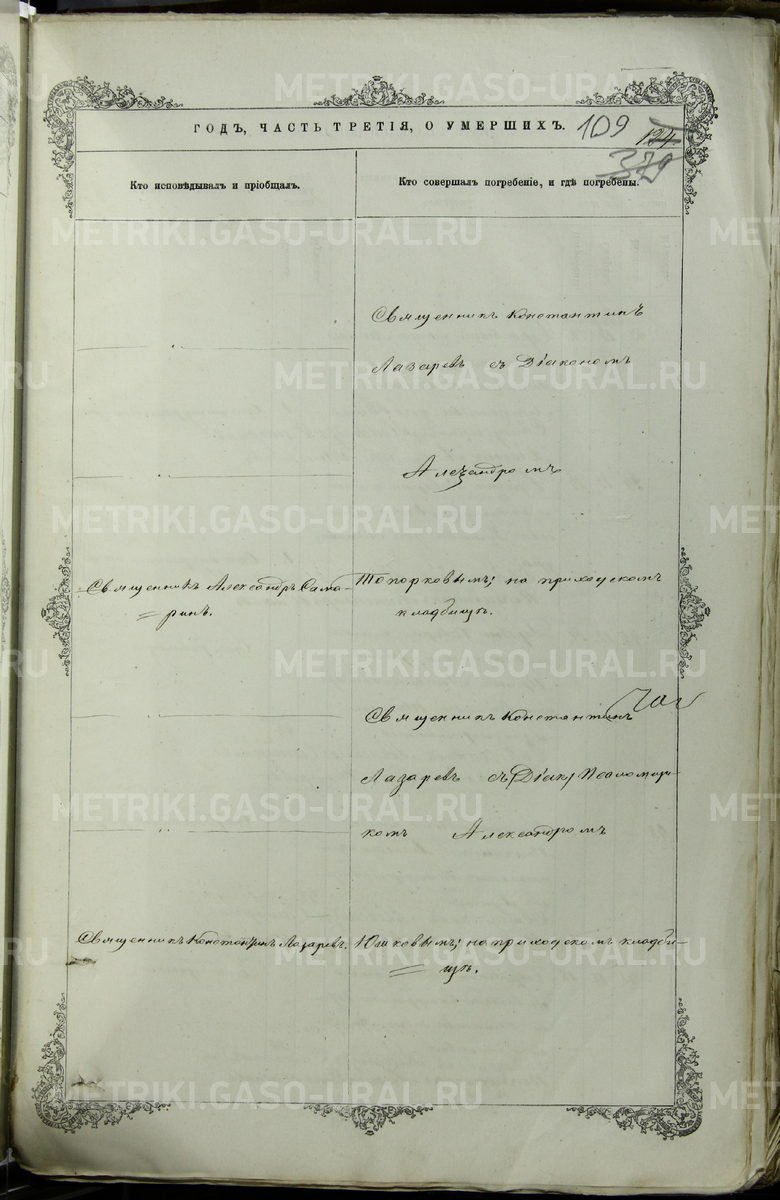 ГОДЪ, ЧАСТЬ ТРЕТІЯ, О УМЕРШИХЪ.
109
124
379
Кто исповѣдывалъ и пріобщалъ.
Кто совершалъ погребеніе, и гдѣ погребены.
Священникъ Константинъ
Лазаревъ съ Діакономъ
Алеѯандромъ
Священникъ Александръ Сама-
ринъ.
Топорковымъ; на приходскомъ
кладбищѣ.
Священникъ Константинъ
Лазаревъ съ (Діак) Псаломщи-
комъ Александромъ
Священникъ Константинъ Лазаревъ.
Юшковымъ; на приходскомъ кладби-
щѣ.
METRIKI.GASO-URAL.RU